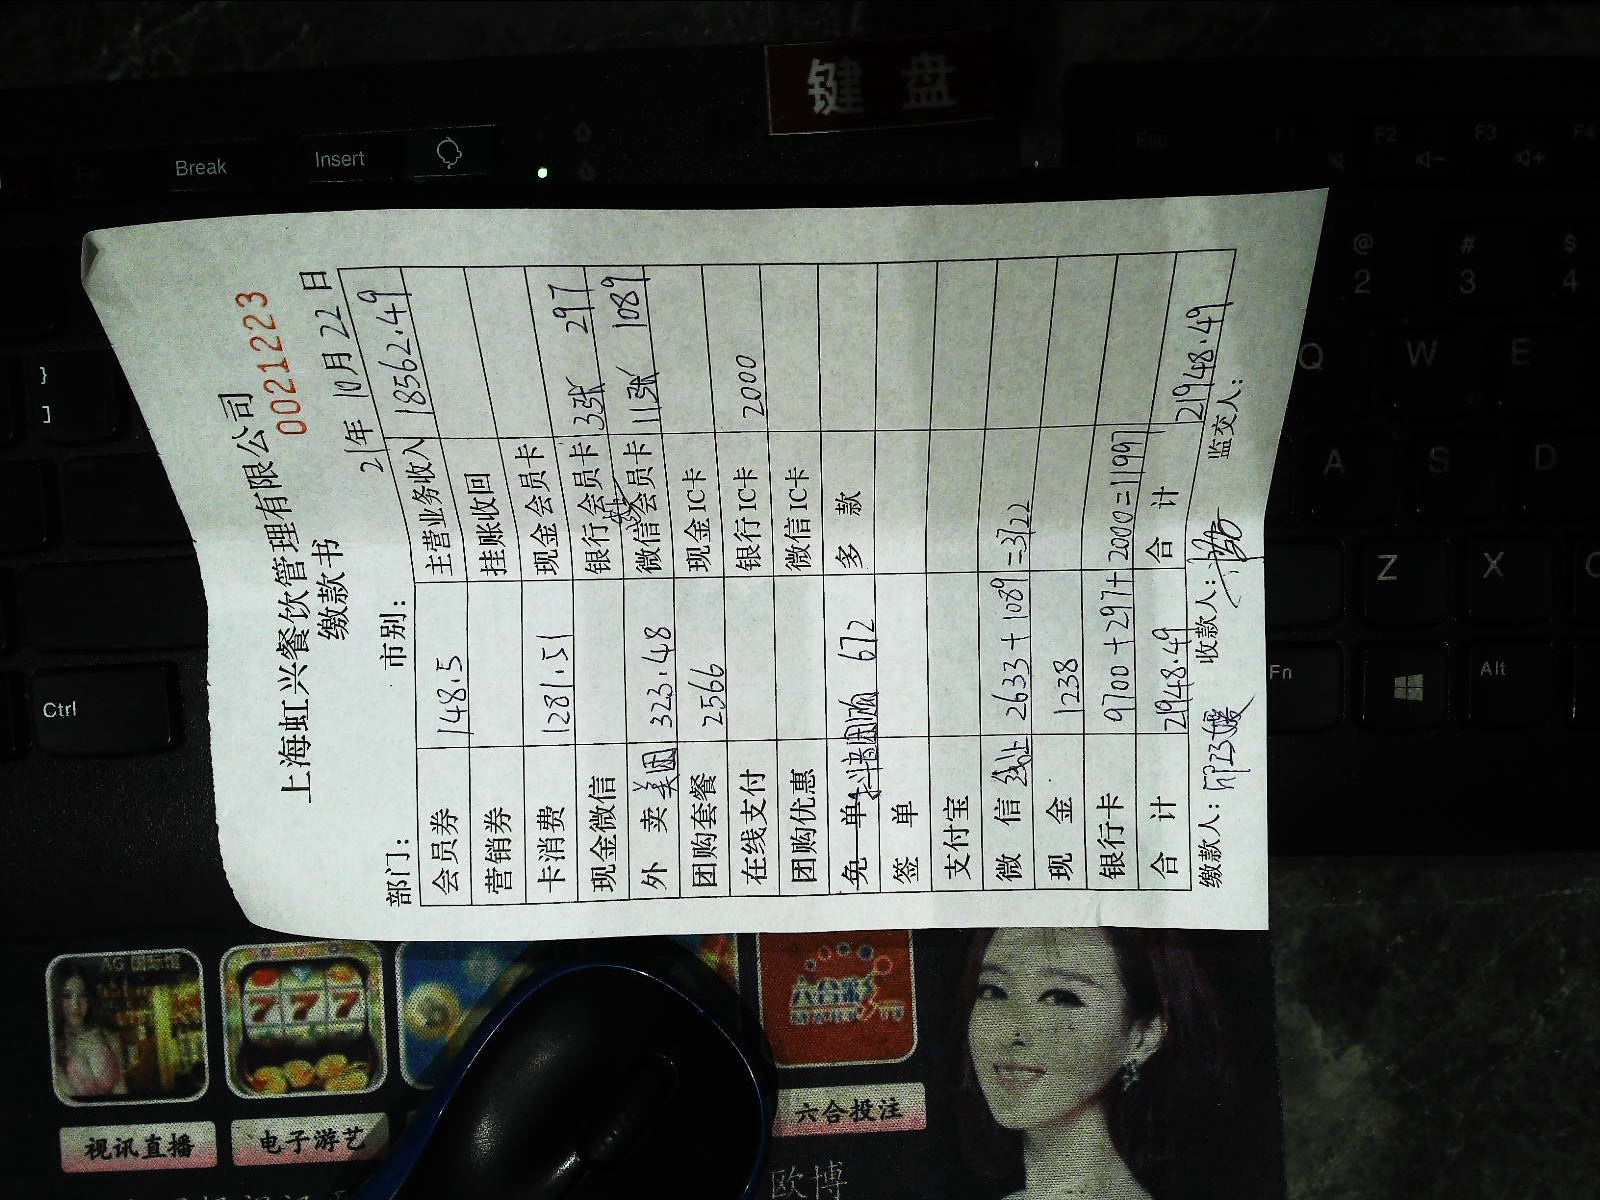 键盘
Break
Insert
Esc
F1
F2
F3
F4
上海虹兴餐饮管理有限公司
缴款书
0021223
部门：
市别：
21年 10月 22日
会员券 148.5 主营业务收入 18562.49
营销券 挂账收回
卡消费 1281.51 现金会员卡
现金微信 银行会员卡 3张 297
外 卖 美团 323.48 微信会员卡 11张 1089
团购套餐 2566 现金IC卡
在线支付 银行IC卡 2000
团购优惠 微信IC卡
免 单 672 多 款
签 单
支付宝
微 信 线上 2633+1089=3722
现 金 1238
银行卡 9700+297+2000=11997
合 计 21948.49 合 计 21948.49
缴款人：
收款人：
监交人：
}
]
Ctrl
@
2
#
3
$
4
Q
W
E
A
S
D
Z
X
C
Fn
Alt
AG 国际馆
777
视讯直播
电子游艺
六合彩
六合投注
欧博